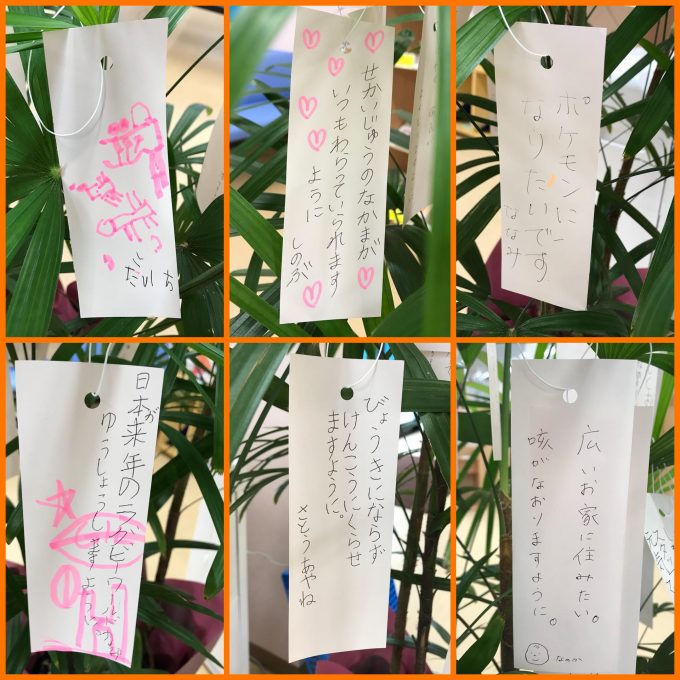 せかいじゅうのなかまが
いつもわらっていられます
ように
しのぶ
ポケモンに
なりたいです
ななみ
日本が来年のラグビーワールド
ゆうしょうし
びょうきにならず
けんこうにくらせ
ますように。
さとうあやね
広いお家に住みたい。
咳がなおりますように。
なのか